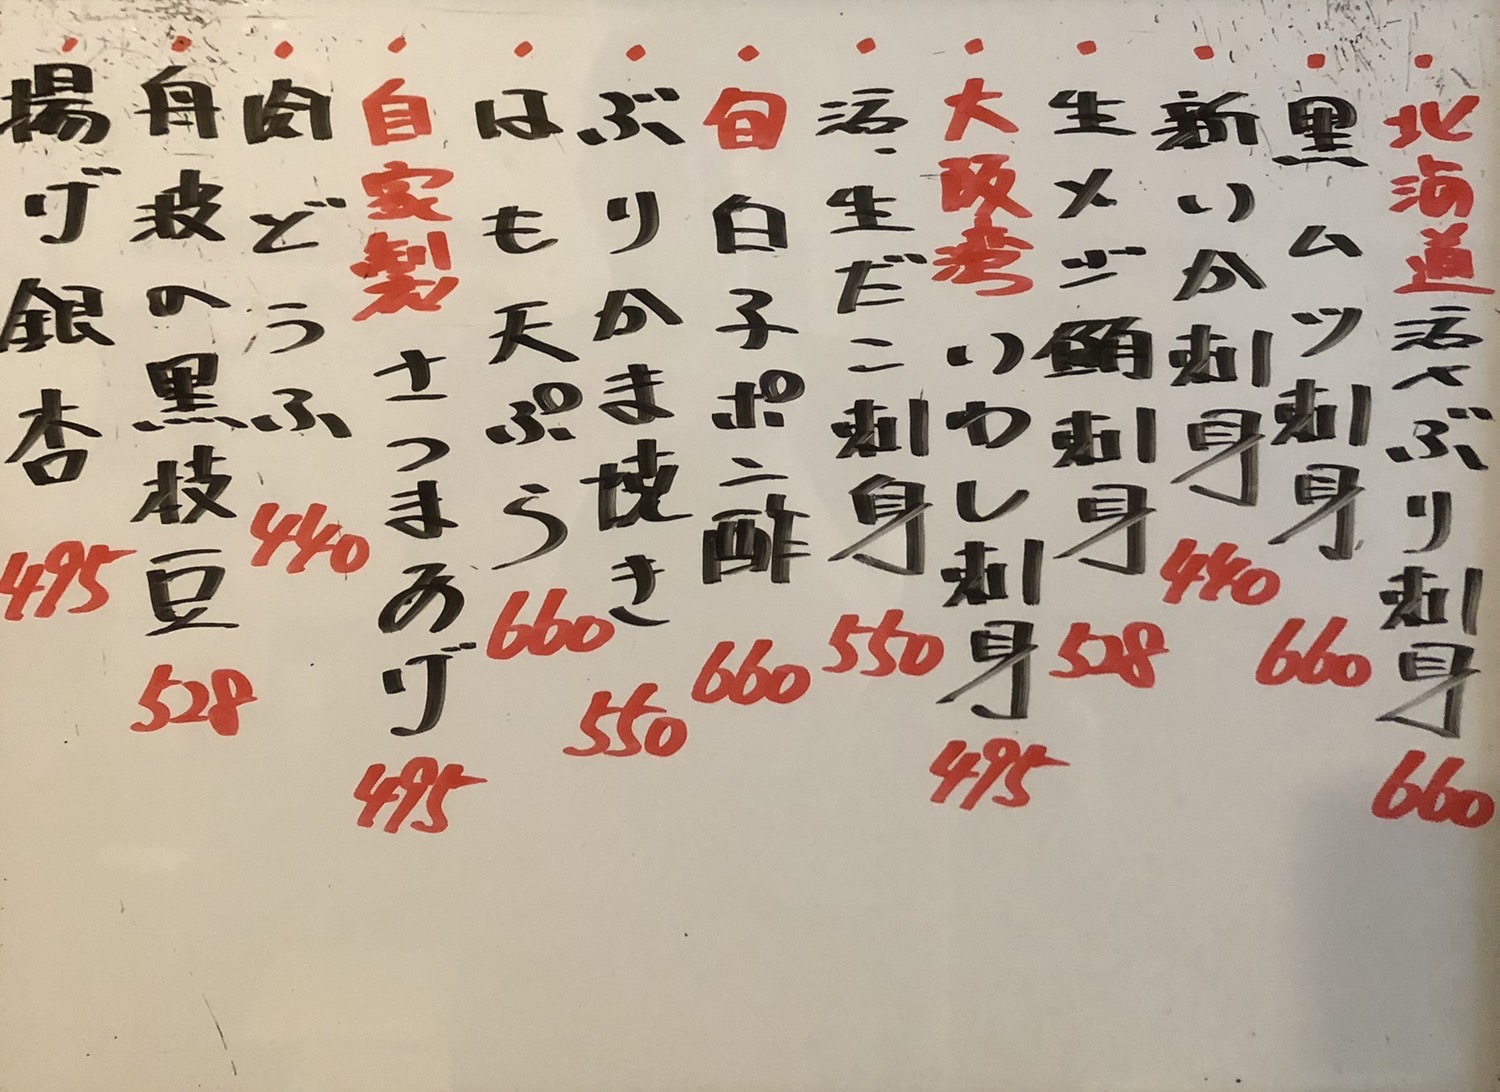 ・北海道活〆ぶり刺身 660
・黒ムツ刺身 660
・新いか刺身 440
・生メジ鮪刺身 528
・大阪湾いわし刺身 495
・活、生だこ刺身 550
・旬白子ポン酢 660
・ぶりかま焼き 550
・はも天ぷら 660
・自家製さつまあげ 495
・肉どうふ 440
・舟波の黒枝豆 528
・揚げ銀杏 495